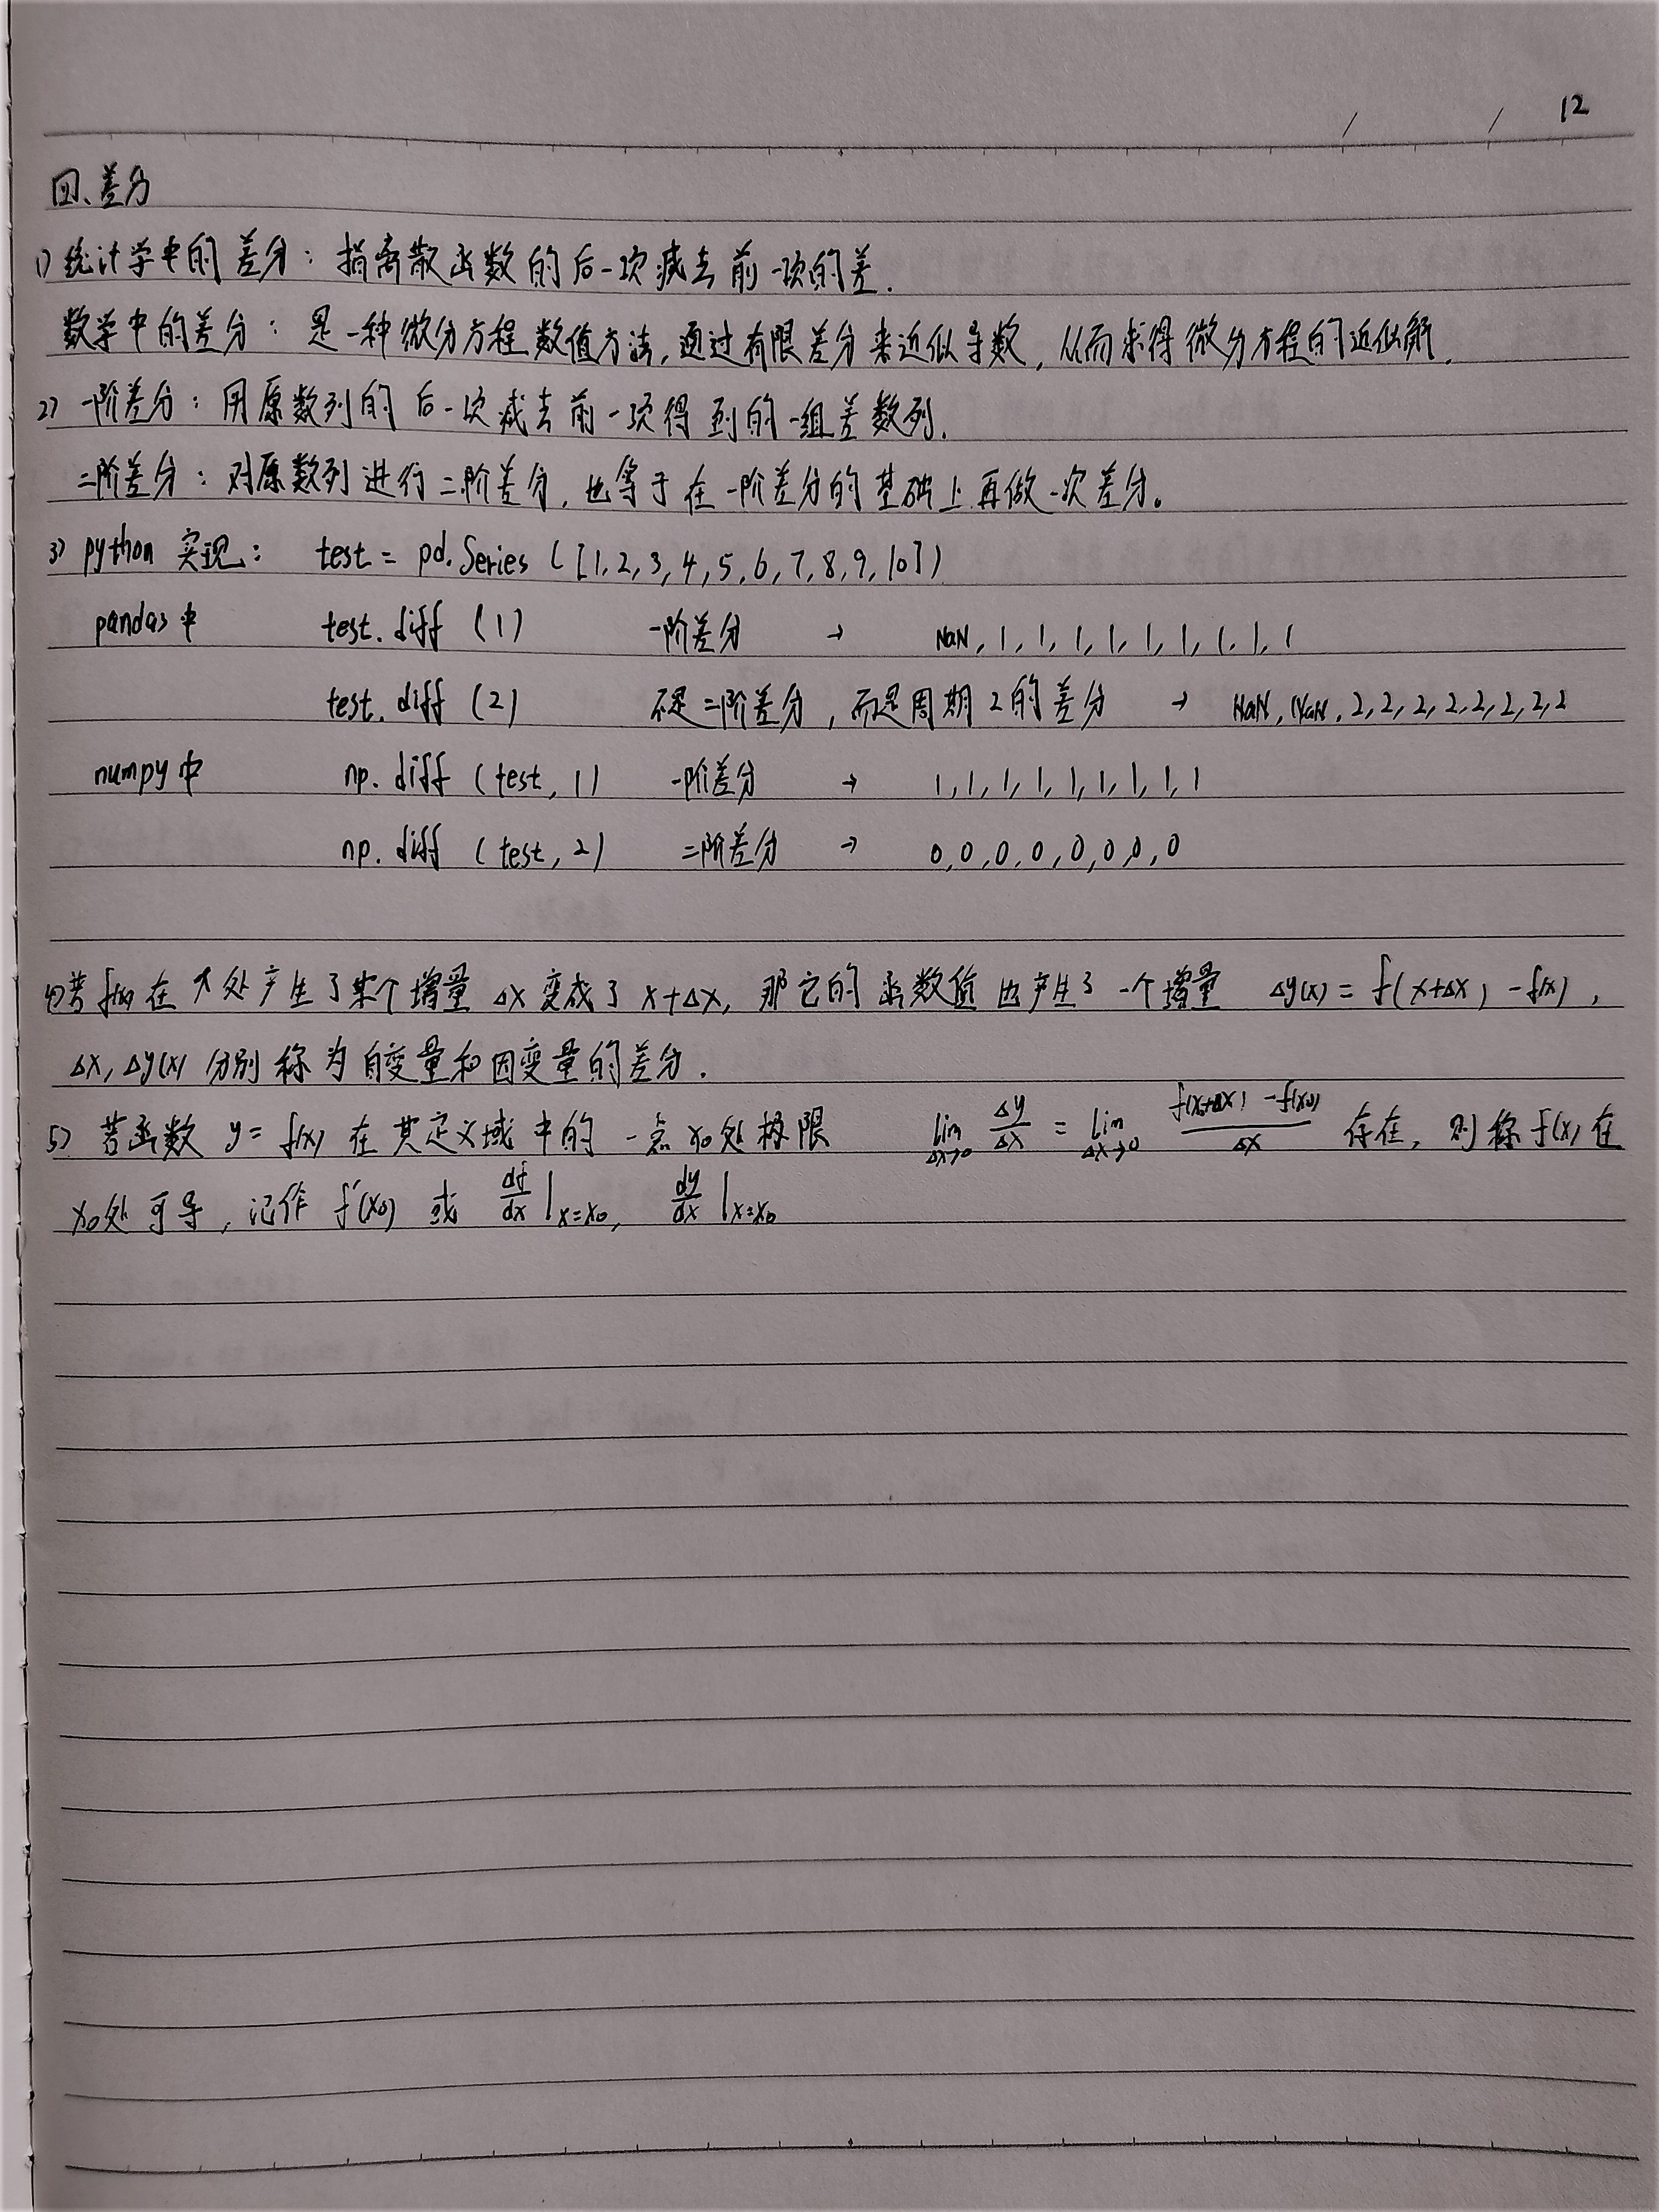 12
四、差分
1) 统计学中的差分：指离散函数的后一次减去前一项的差.
数学中的差分：是一种微分方程数值方法, 通过有限差分来近似导数, 从而求得微分方程的近似解.
2) 一阶差分：用原数列的后一次减去前一项得到的一组差数列.
二阶差分：对原数列进行二阶差分, 也等于在一阶差分的基础上再做一次差分。
3) python 实现： test = pd.Series ([1,2,3,4,5,6,7,8,9,10])
pandas中 test.diff (1) 一阶差分 → NaN,1,1,1,1,1,1,1,1,1
test.diff (2) 不是二阶差分, 而是周期2的差分 → NaN,NaN,2,2,2,2,2,2,2,2
numpy中 np.diff (test,1) 一阶差分 → 1,1,1,1,1,1,1,1,1
np.diff (test,2) 二阶差分 → 0,0,0,0,0,0,0,0
4) 若f(x)在x处产生了某个增量 Δx 变成了 x+Δx, 那它的函数值也产生了一个增量 Δy(x) = f(x+Δx) - f(x),
Δx, Δy(x) 分别称为自变量和因变量的差分.
5) 若函数 y= f(x) 在其定义域中的一点x₀处极限 lim Δx→0 Δy/Δx = lim Δx→0 (f(x₀+Δx) - f(x₀))/Δx 存在, 则称f(x)在
x₀处可导, 记作 f'(x₀) 或 df/dx |x=x₀, dy/dx |x=x₀